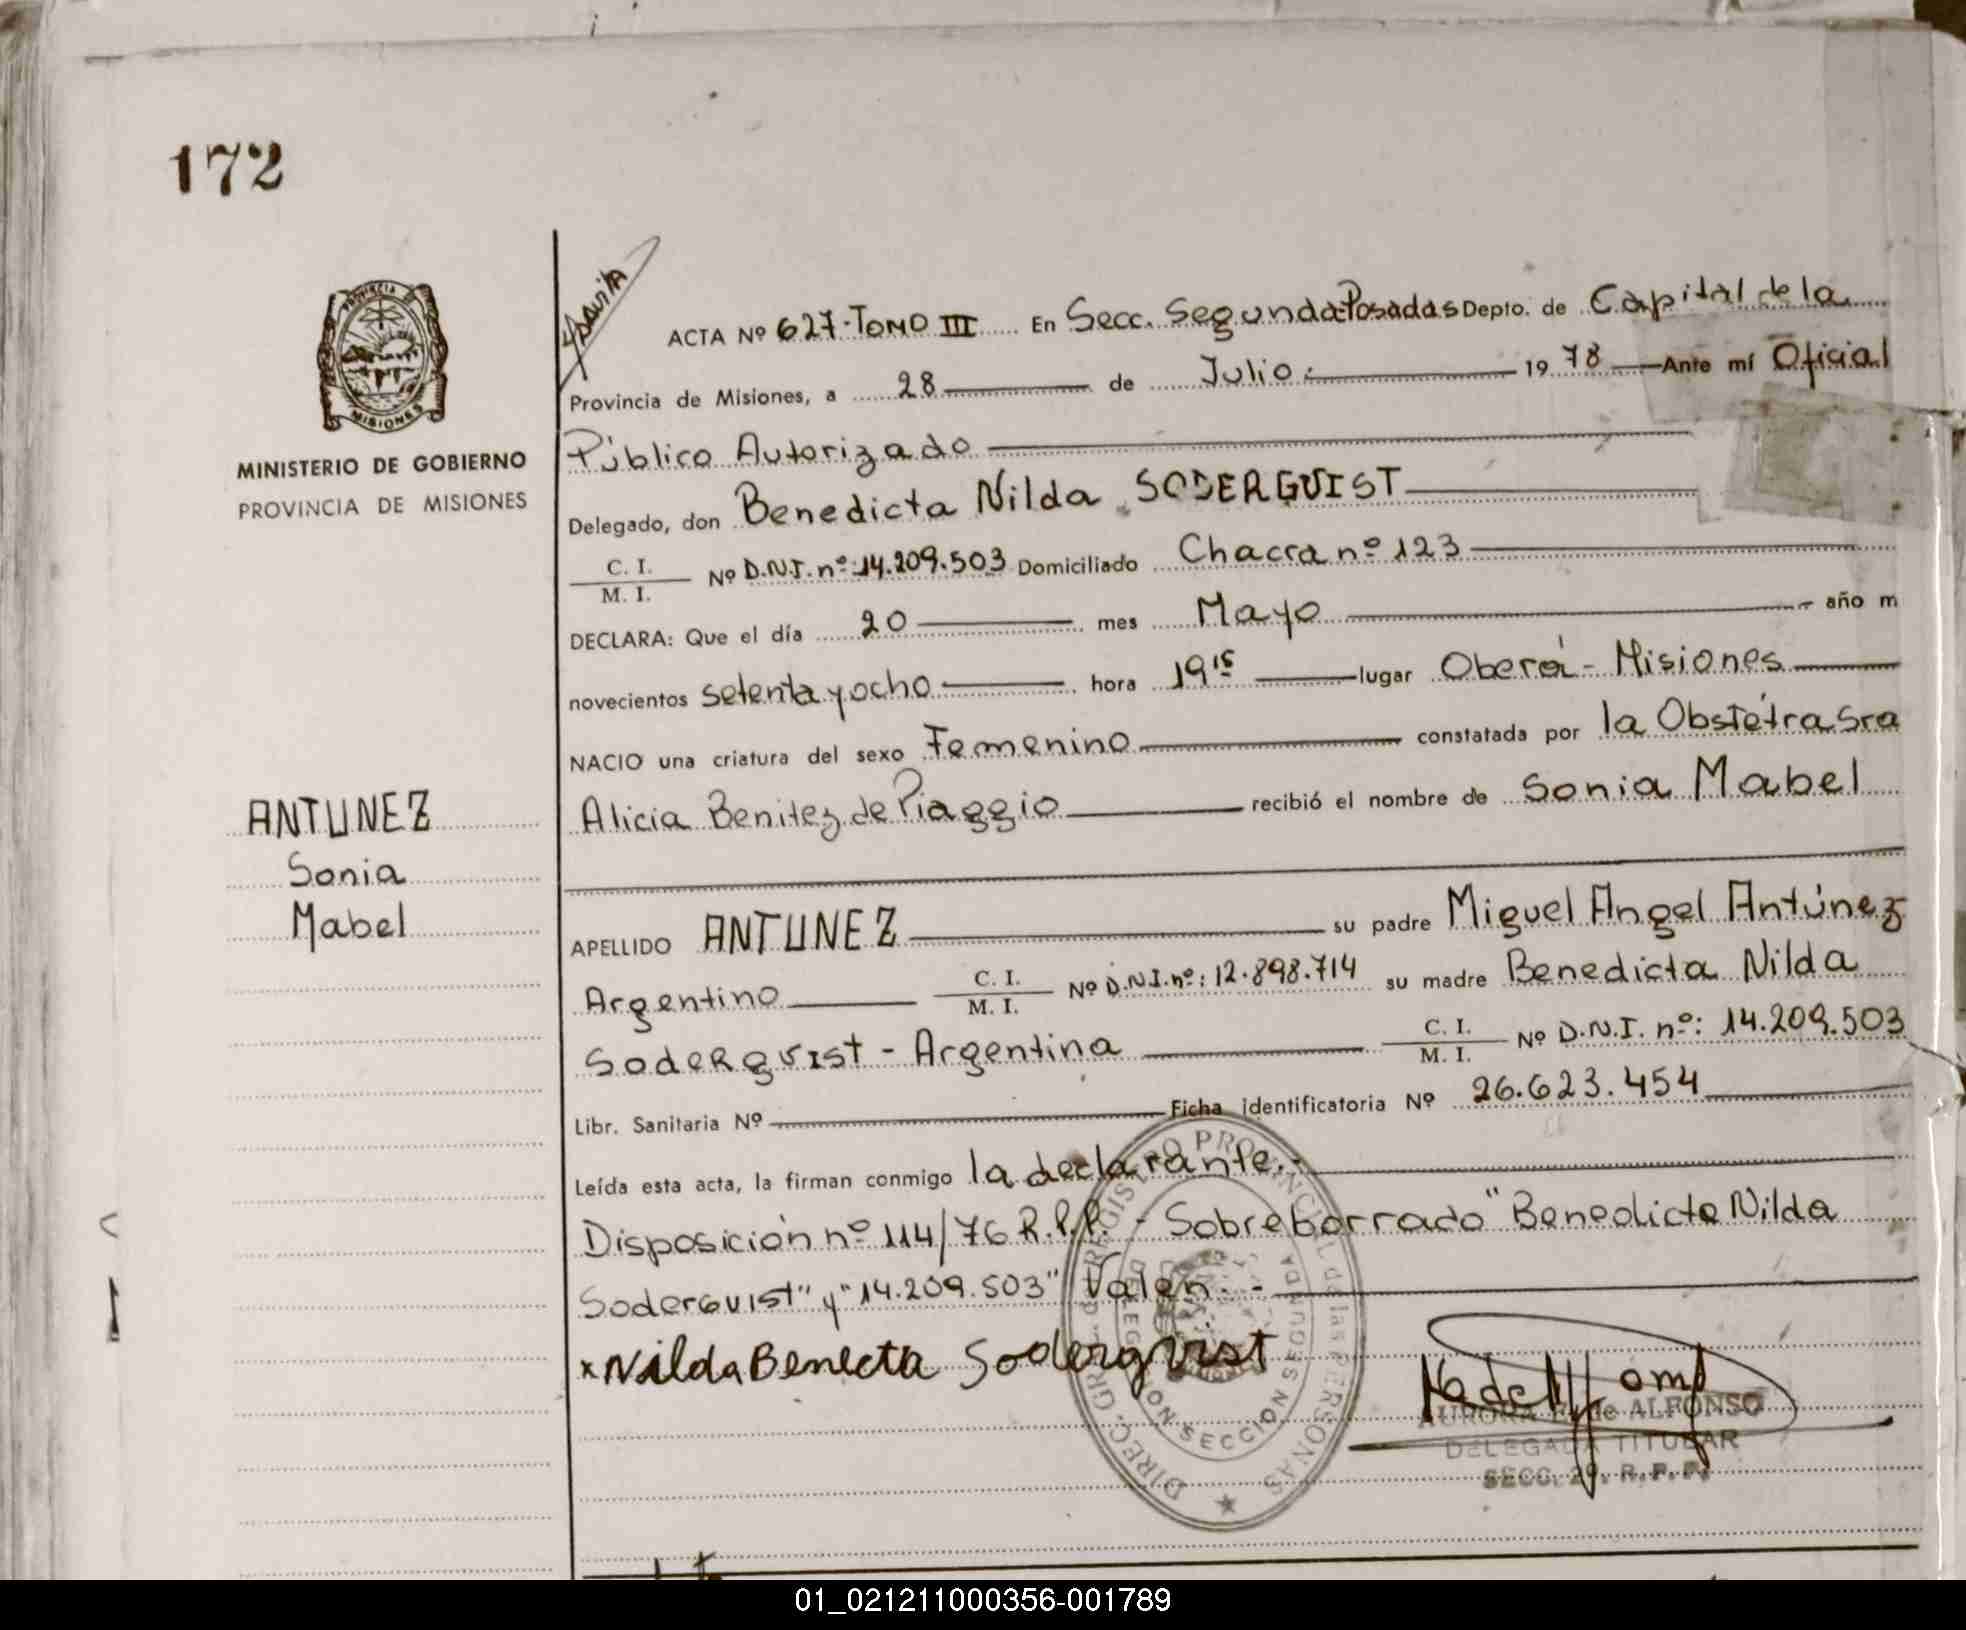 172
PROVINCIA
MISIONES
MINISTERIO DE GOBIERNO
PROVINCIA DE MISIONES
ANTUNEZ
Sonia
Mabel
ACTA Nº 627-TOMO III En Secc. Segunda Posadas Depto. de Capital de la
Provincia de Misiones, a 28 de Julio.- 19 78 Ante mí Oficial
Público Autorizado
Delegado, don Benedicta Nilda SODERGUIST
C. I.
M. I. Nº D.N.I. nº: 14.209.503 Domiciliado Chacra nº 123
DECLARA: Que el día 20 mes Mayo año m
novecientos setenta y ocho hora 19 15 lugar Oberá - Misiones
NACIO una criatura del sexo Femenino constatada por la Obstétra Sra
Alicia Benitez de Piaggio recibió el nombre de Sonia Mabel
APELLIDO ANTUNEZ su padre Miguel Angel Antúnez
Argentino C. I. M. I. Nº D.N.I. nº: 12.898.714 su madre Benedicta Nilda
Soderguist - Argentina C. I. M. I. Nº D.N.I. nº: 14.209.503
Libr. Sanitaria Nº Ficha identificatoria Nº 26.623.454
Leída esta acta, la firman conmigo la declarante.-
Disposición nº 114/76 R.P.P. - Sobreborrado "Benedicta Nilda
Soderguist" y "14.209.503" Valen.-
x Nilda Benecta Soderguist
DIREC. GRL. de REGISTRO PROVINCIAL de las PERSONAS
DELEGACION SECCION SEGUNDA
AURORA F. de ALFONSO
DELEGADA TITULAR
SECC. 2ª. R.P.P.
01_021211000356-001789